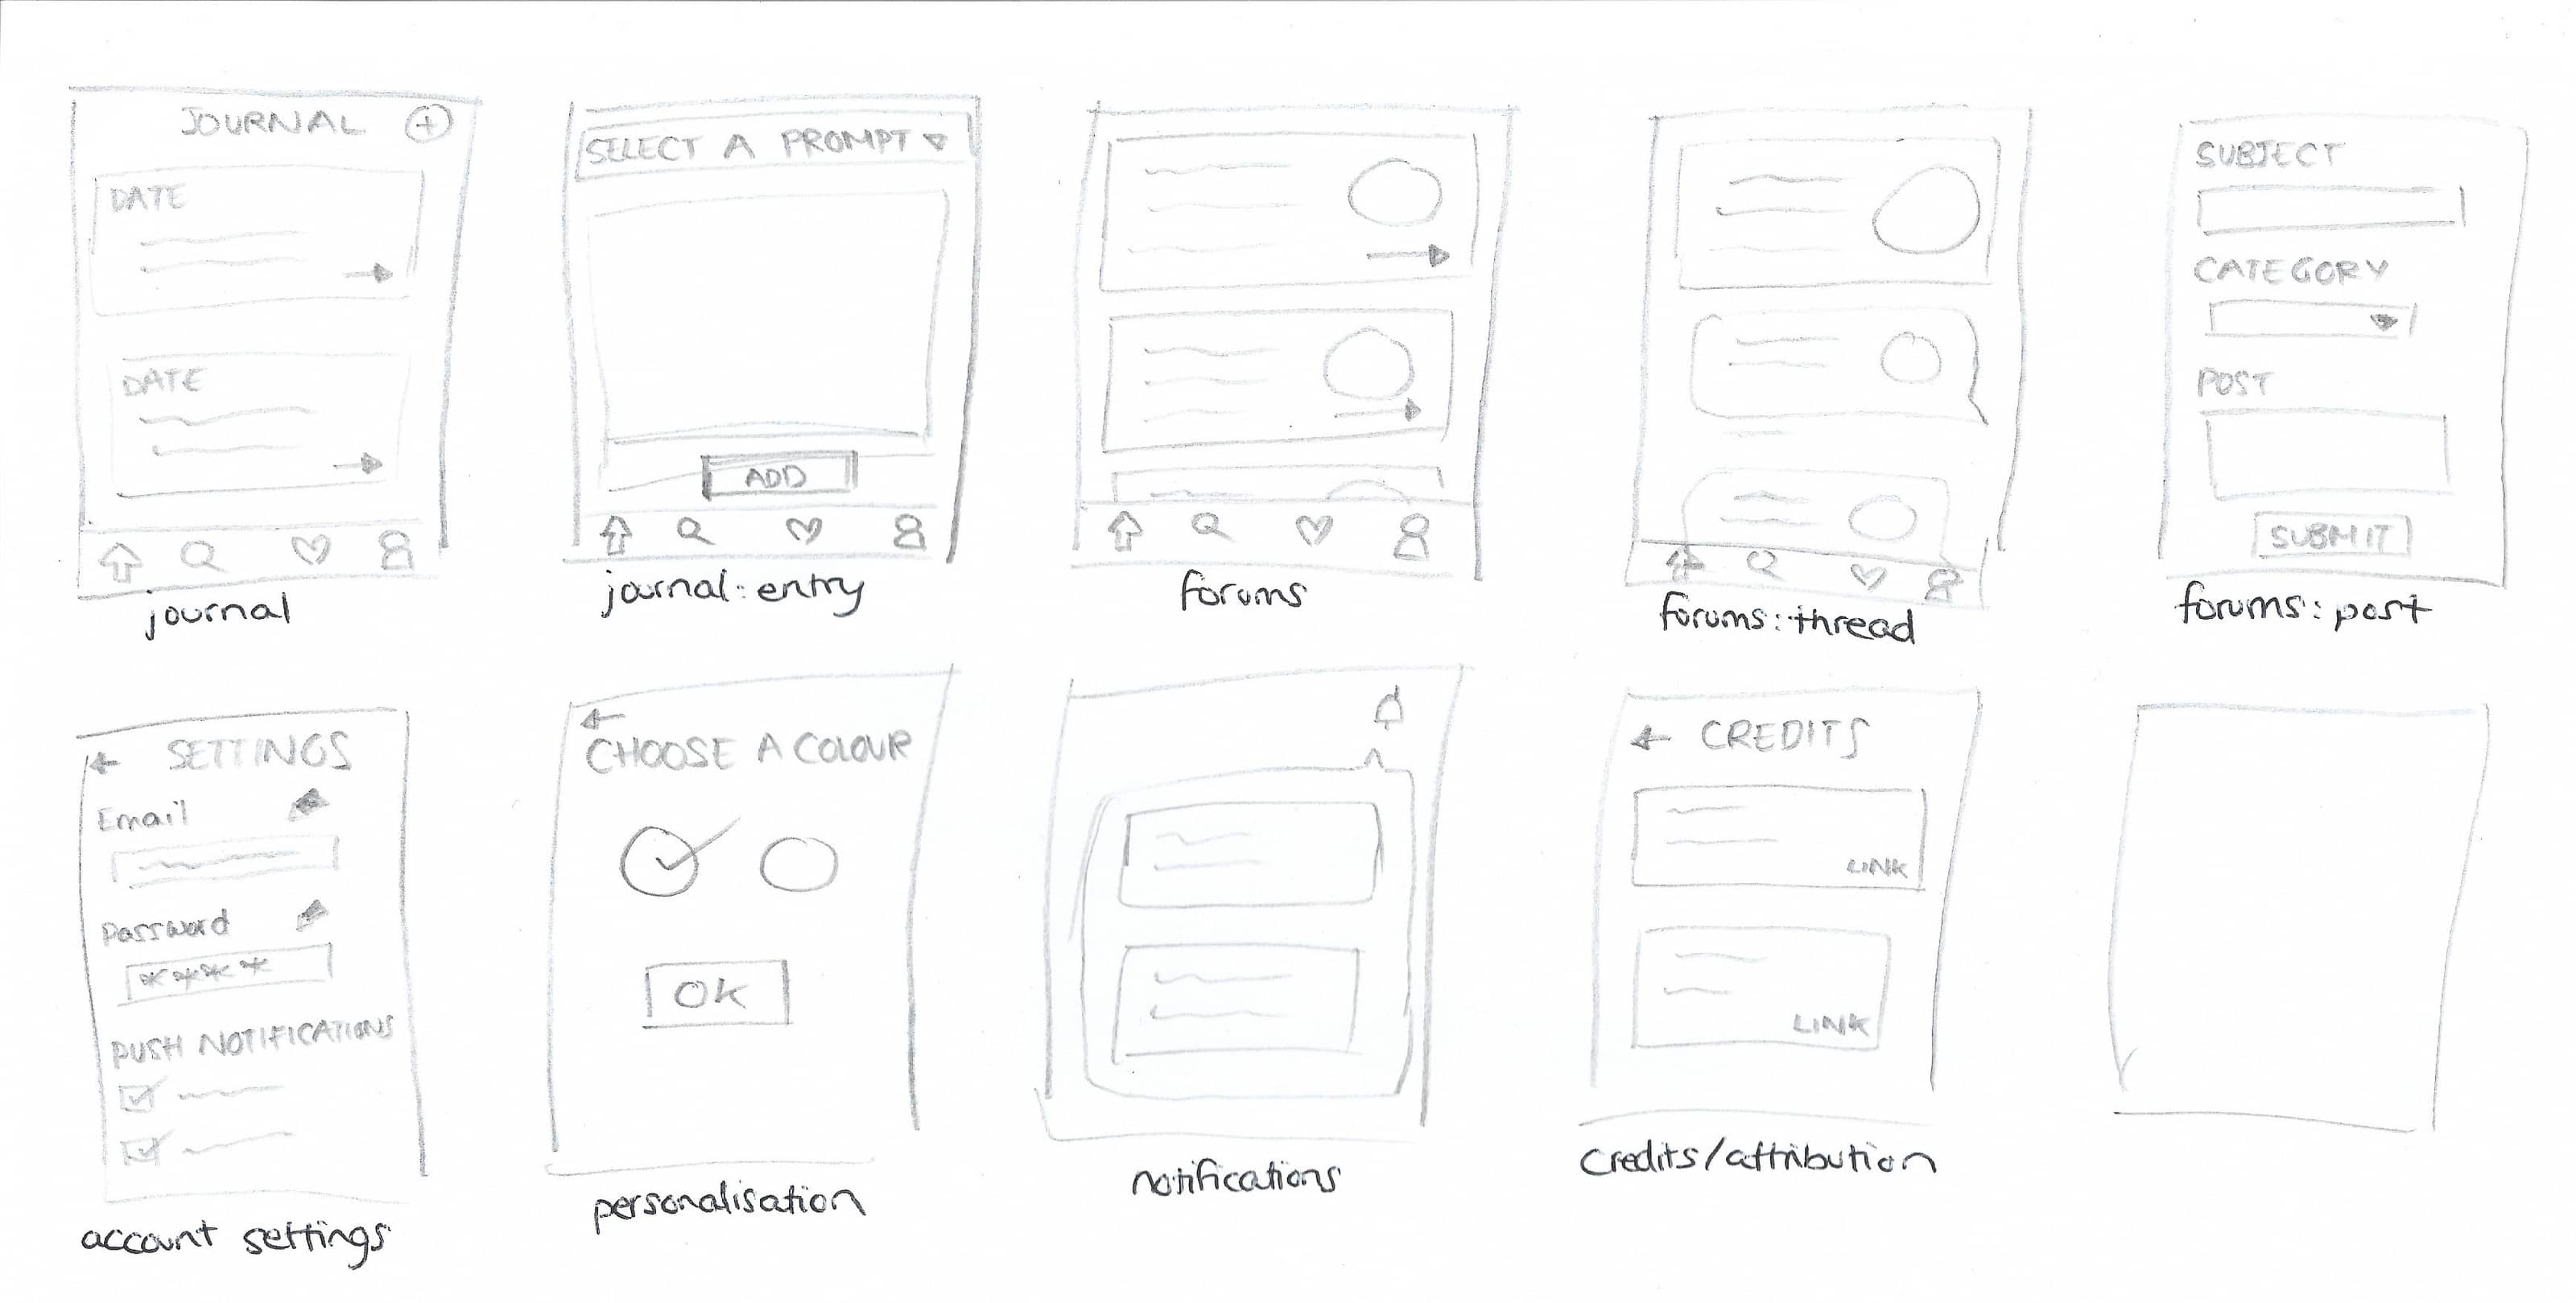 JOURNAL
DATE
DATE
journal
SELECT A PROMPT
ADD
journal: entry
forums
forums: thread
SUBJECT
CATEGORY
POST
SUBMIT
forums: post
SETTINGS
Email
Password
****
PUSH NOTIFICATIONS
account settings
CHOOSE A COLOUR
OK
personalisation
notifications
CREDITS
LINK
LINK
credits/attribution